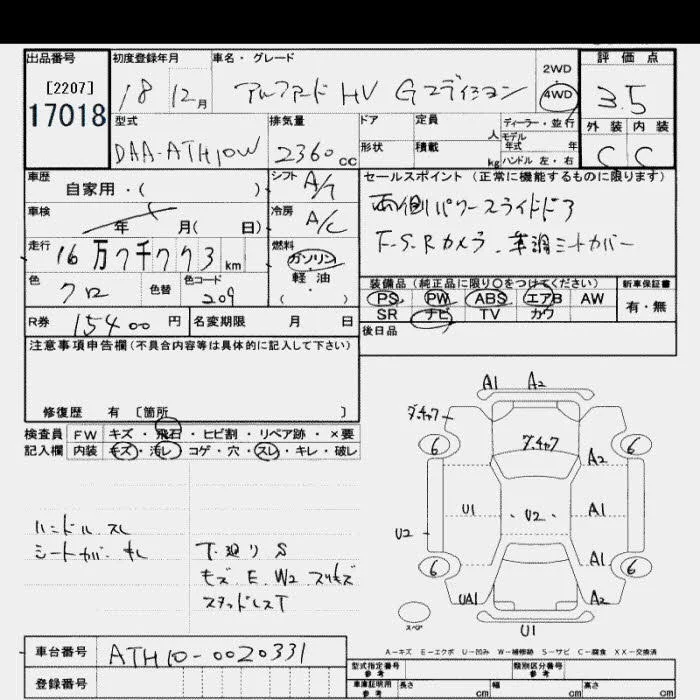 出品番号
[2207]
17018
初度登録年月
18 12月
車名・グレード
アルファード HV Gエディション
2WD
4WD
評価点
3.5
外装 内装
C C
型式
DAA-ATH10W
排気量
2360cc
ドア
形状
定員 人
積載 kg
ディーラー・並行
モデル年式 年
ハンドル 左・右
車歴
自家用・( )
シフト A/T
車検
年 月( 日)
冷房 A/C
走行
16万7千773km
燃料
ガソリン
軽油・
( )
色
クロ
色替
色コード
209
R券 15400円
名変期限 月 日
セールスポイント(正常に機能するものに限ります)
両側パワースライドドア
F.S.Rカメラ.革調シートカバー
装備品(純正品に限り○をつけてください)
PS PW ABS エアB AW
SR ナビ TV カワ
新車保証書
有・無
後日品
注意事項申告欄(不具合内容等は具体的に記入して下さい)
修復歴 有 〔箇所 〕
検査員
記入欄
FW キズ・飛石・ヒビ割・リペア跡・×要
内装 キズ・汚レ・コゲ・穴・スレ・キレ・破レ
ハンドル スレ
シートカバー キレ
T.廻り S
モズ E.W2 スリキズ
スタッドレスT
A1 A2
ダ.チャク7
ダ.チャク7
6 6
A2
U1 U2 A1
U2
A1
6 6
UA1 A2
スペア
U1
A-キズ E-エクボ U-凹み W-補修跡 S-サビ C-腐食 XX-交換済
車台番号 ATH10-0020331
登録番号
型式指定番号 参考
類別区分番号 参考
車庫証明用 参考
長さ cm
幅 cm
高さ cm